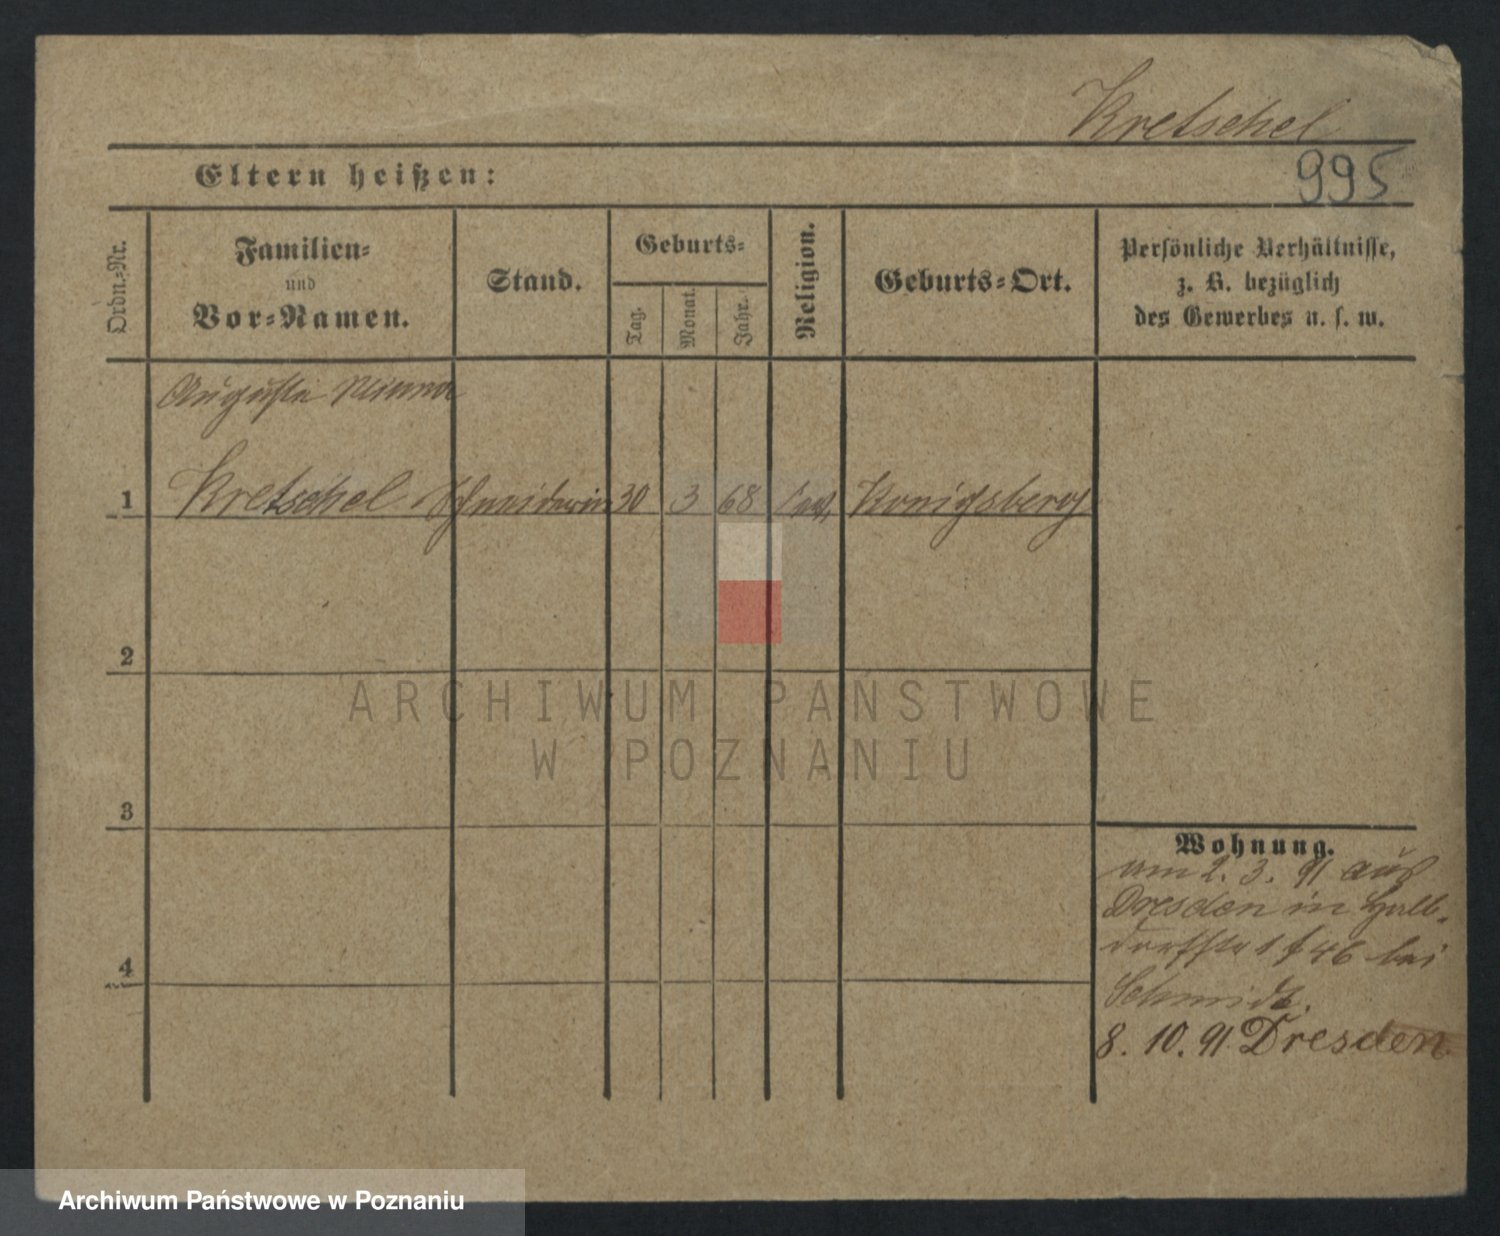 Kretschel
995
Eltern heißen:
Ordn.-Nr.
Familien-
und
Vor-Namen.
Stand.
Geburts-
Tag.
Monat.
Jahr.
Religion.
Geburts-Ort.
Persönliche Verhältnisse,
z. B. bezüglich
des Gewerbes u. s. w.
Auguste Minna
1 Kretschel Schneiderin 30 3 68 Königsberg
2
3
4
Wohnung.
am 2. 3. 91 aus
Dresden in Halb-
dorfstr 46 bei
Schmidt.
8. 10. 91 Dresden
ARCHIWUM PAŃSTWOWE
W POZNANIU
Archiwum Państwowe w Poznaniu